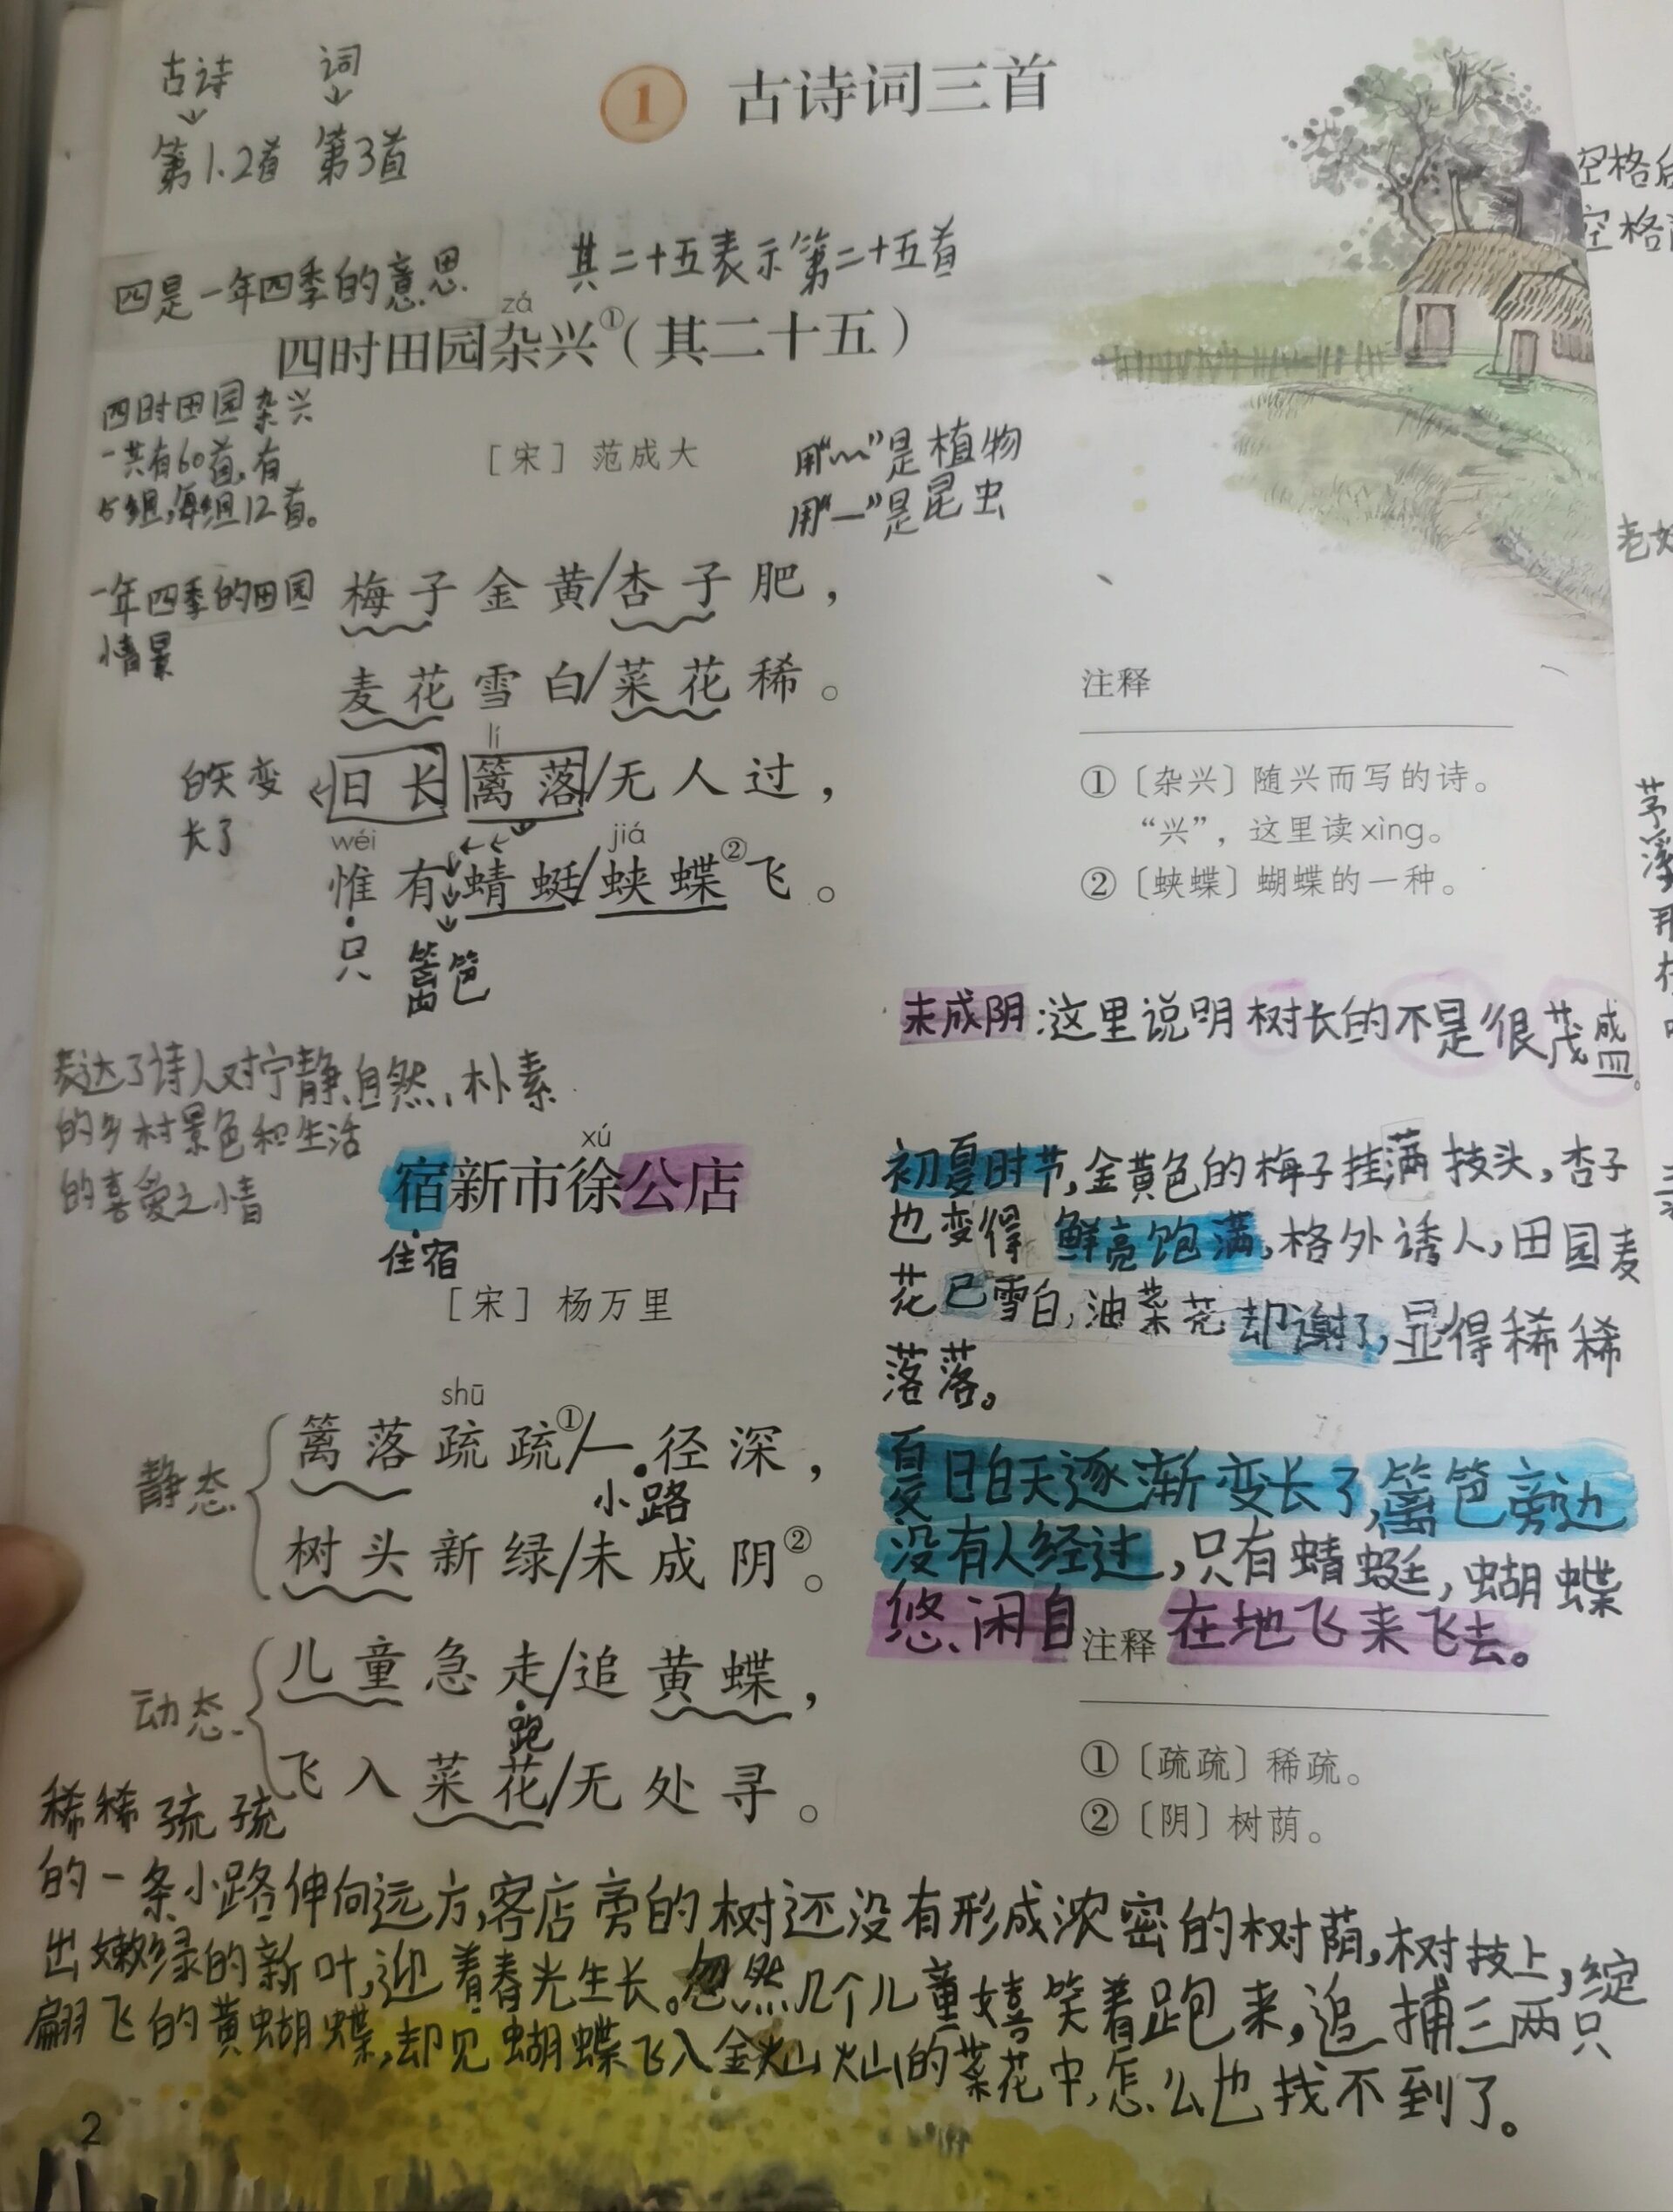 古诗 词
第1.2首 第3首
1 古诗词三首
空格
空格
四是一年四季的意思
其二十五表示第二十五首
zá
四时田园杂兴①（其二十五）
四时田园杂兴
一共有60首,有
5组,每组12首。
［宋］范成大
用“﹏”是植物
用“—”是昆虫
一年四季的田园
情景
梅子金黄/杏子肥，
麦花雪白/菜花稀。
lí
日长篱落/无人过，
白天变
长了
wéi jiá
惟有蜻蜓/蛱蝶②飞。
只
篱笆
注释
①〔杂兴〕随兴而写的诗。
“兴”，这里读xìng。
②〔蛱蝶〕蝴蝶的一种。
表达了诗人对宁静、自然、朴素
的乡村景色和生活
的喜爱之情
未成阴:这里说明树长的不是很茂盛。
初夏时节,金黄色的梅子挂满技头,杏子
也变得鲜亮饱满,格外诱人,田园麦
花已雪白,油菜花却谢了,显得稀稀
落落。
夏日白天逐渐变长了,篱笆旁边
没有人经过,只有蜻蜓,蝴蝶
悠闲自在地飞来飞去。
xú
宿新市徐公店
住宿
［宋］杨万里
shū
篱落疏疏①/一径深，
小路
树头新绿/未成阴②。
静态
儿童急走/追黄蝶，
跑
飞入菜花/无处寻。
动态
注释
①〔疏疏〕稀疏。
②〔阴〕树荫。
稀稀疏疏
的一条小路伸向远方,客店旁的树还没有形成浓密的树荫,树技上,绽
出嫩绿的新叶,迎着春光生长。忽然几个儿童嬉笑着跑来,追捕三两只
翩飞的黄蝴蝶,却见蝴蝶飞入金灿灿的菜花中,怎么也找不到了。
2